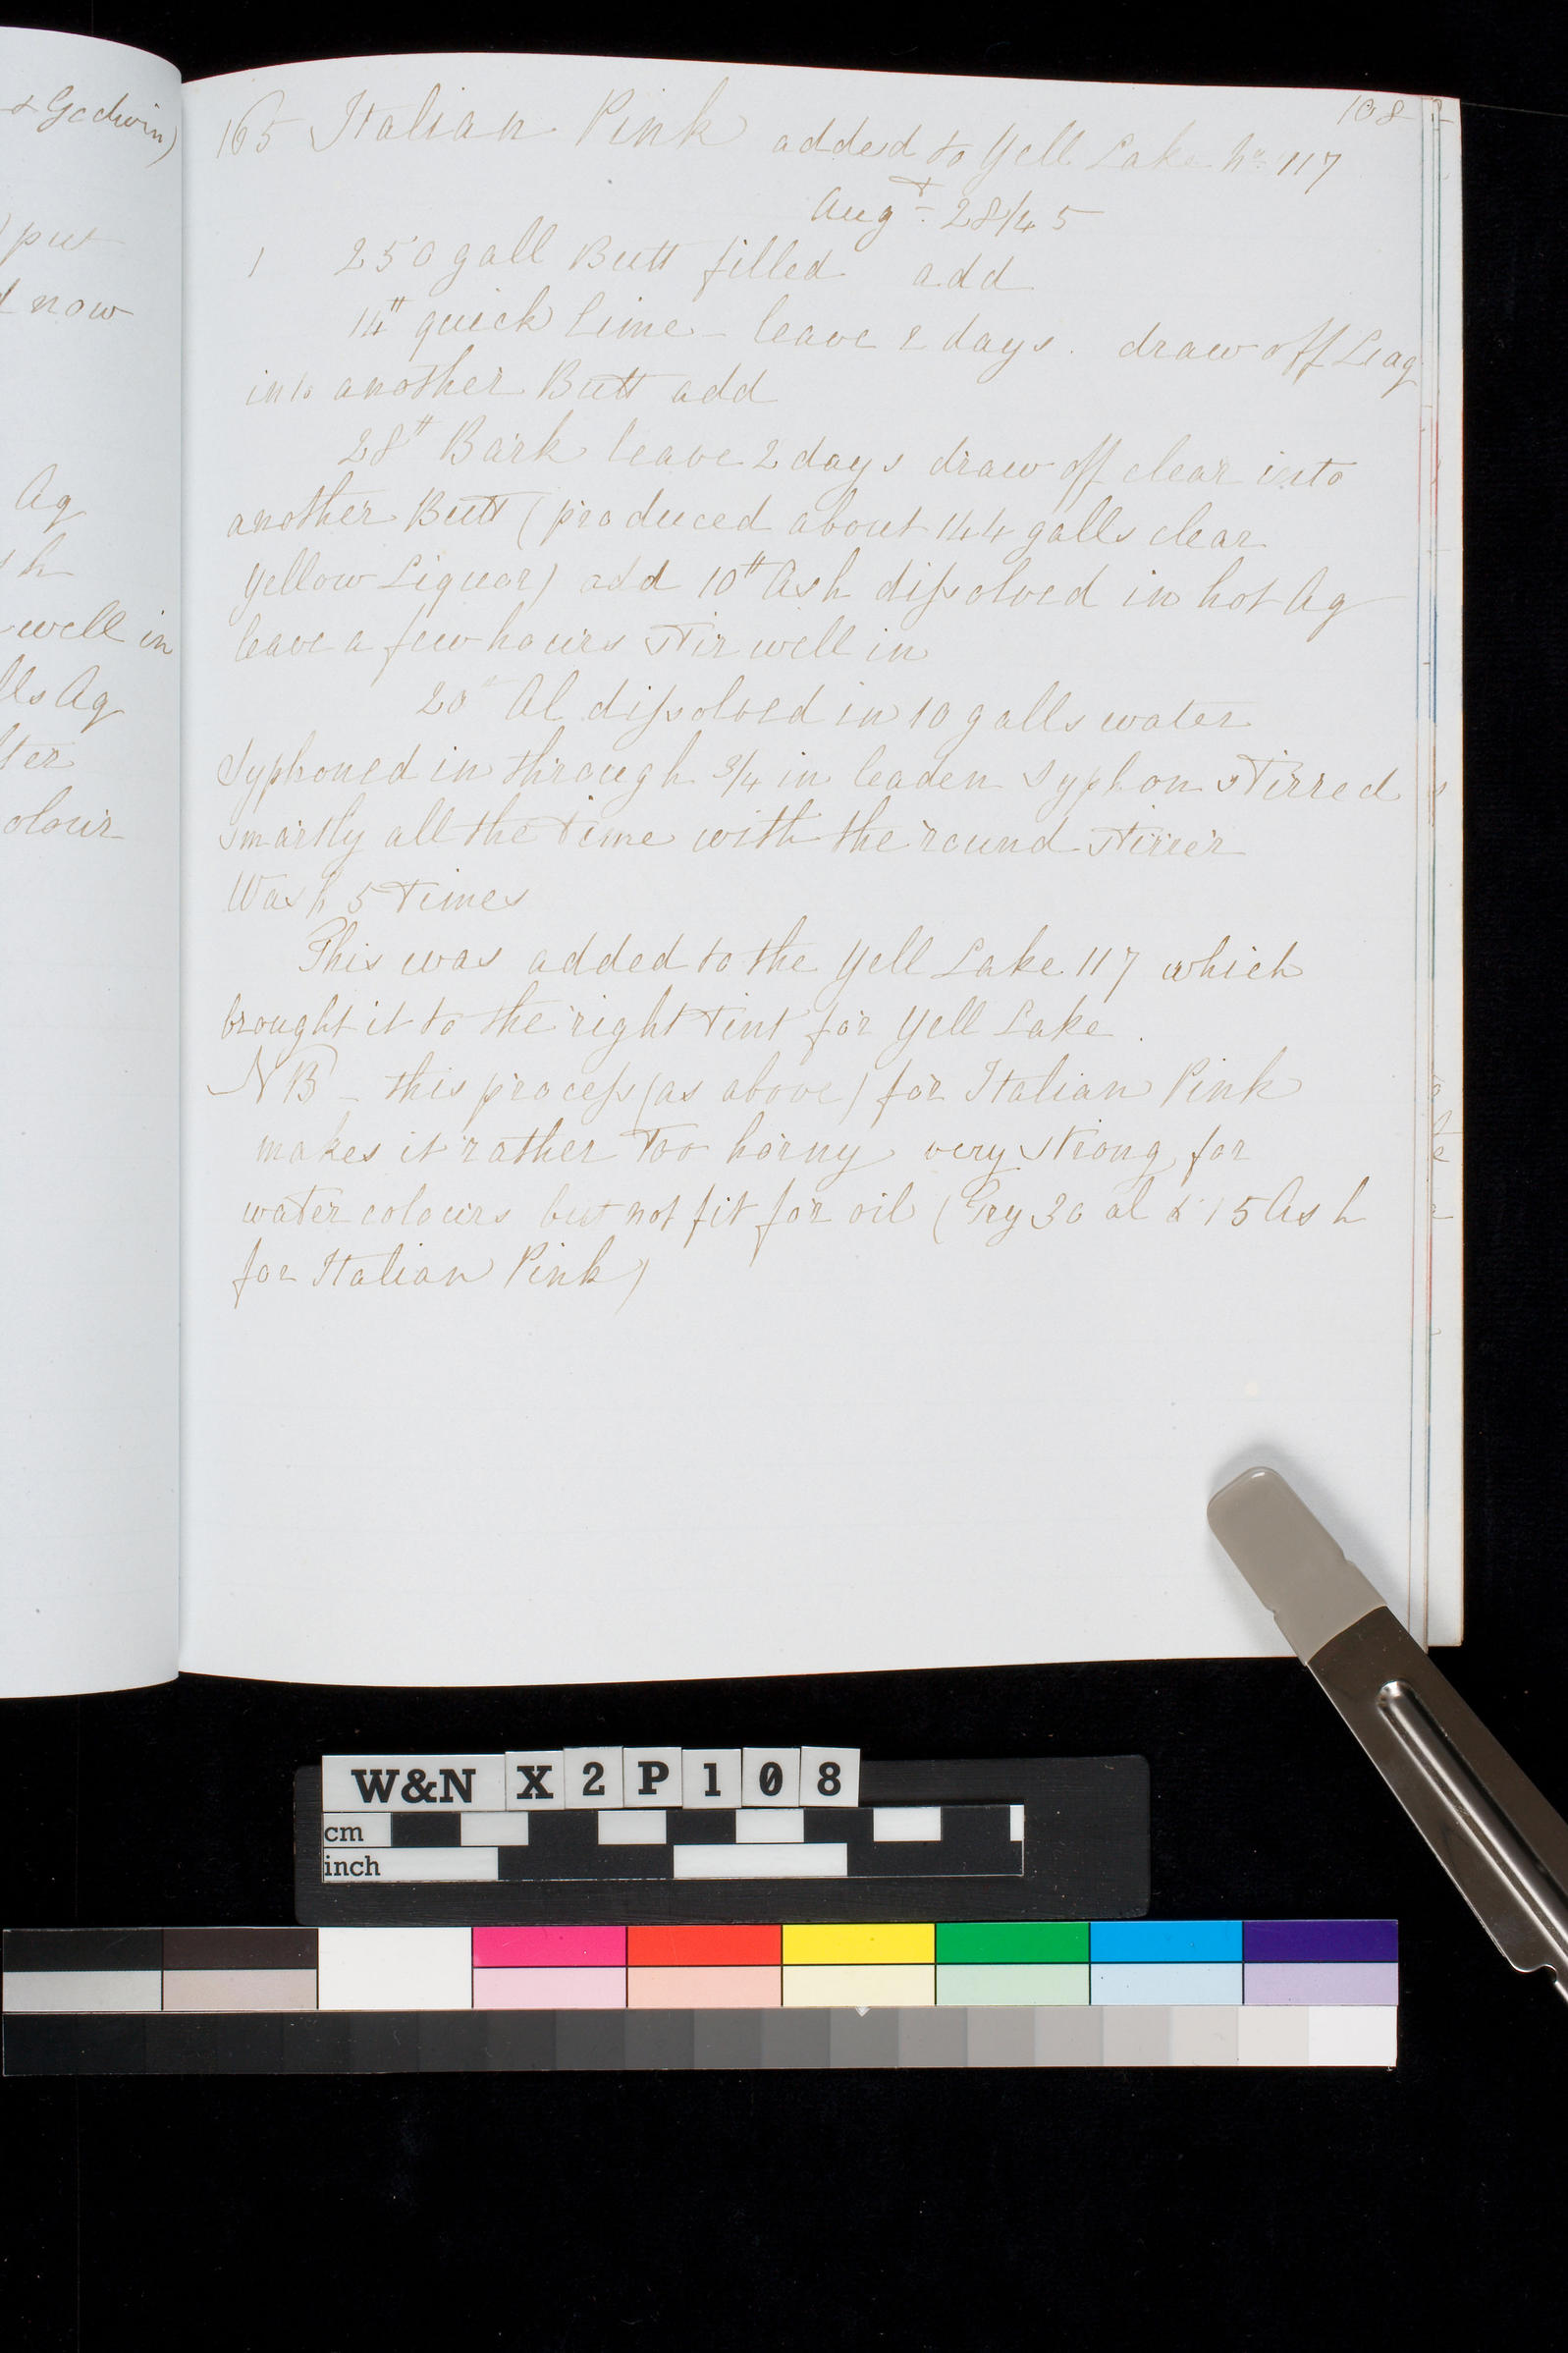 & Godwin)
put
d now
Aq
sh
well in
lls Aq
lter
olour
108
165 Italian Pink added to Yell Lake No 117
Augt 28/45
1 250 gall Butt filled add
14# quick lime - leave 2 days. draw off
into another Butt add
28# Bark leave 2 days draw off clear into
another Butt (produced about 144 galls clear
Yellow Liquor) add 10# Ash dissolved in hot Aq
leave a few hours stir well in
20# Al dissolved in 10 galls water
Syphoned in through 3/4 in leaden Syphon stirred
smartly all the time with the round stirrer
Wash 5 times
This was added to the Yell Lake 117 which
brought it to the right tint for Yell Lake.
NB - this process (as above) for Italian Pink
makes it rather too horny very strong for
water colours but not fit for oil (Try 30 al & 15 Ash
for Italian Pink)
W&N X2P108
cm
inch